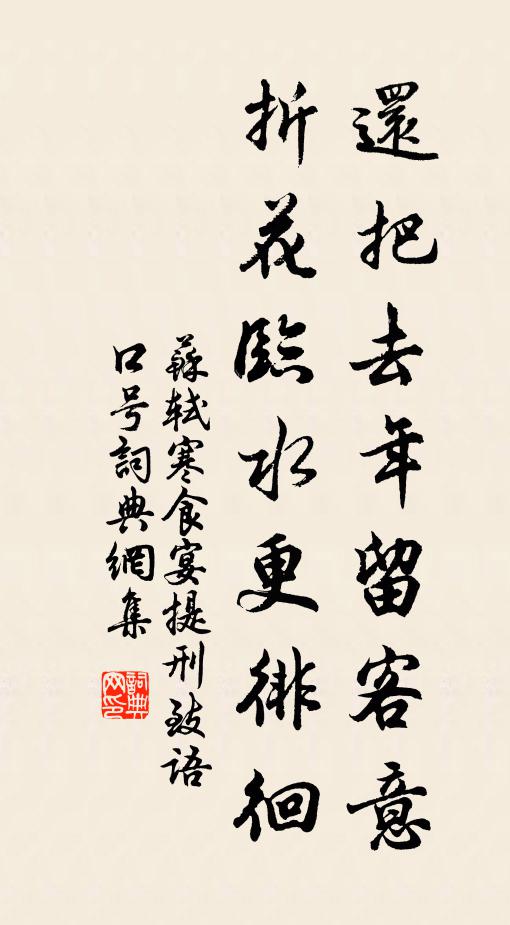 還把去年留客意
折花臨水更徘徊
蘇軾寒食宴提刑致語
口号詞典網集
詞典
网印